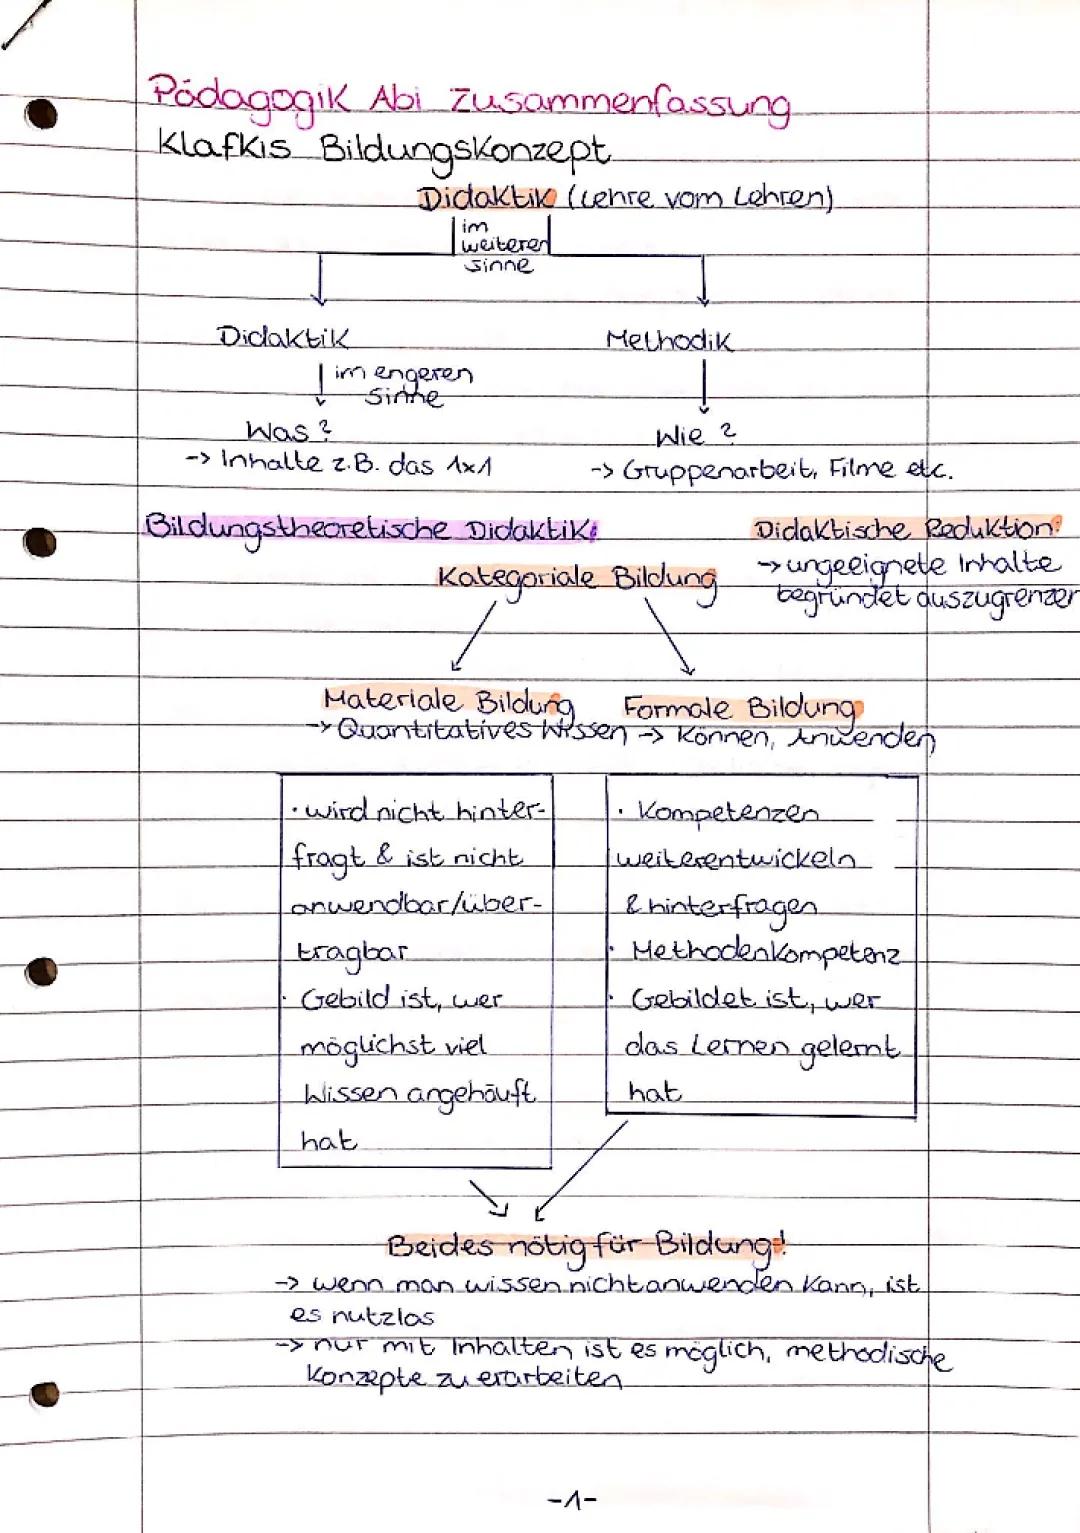 Pädagogik Abi Zusammenfassung
Klafkis Bildungskonzept
Didaktik (Lehre vom Lehren)
im
weiteren
sinne
Didaktik
Methodik
im engeren
sinne
Was?
Wie ?
-> Inhalte z.B. das 1x1
-> Gruppenarbeit, Filme etc.
Bildungstheoretische Didaktik:
Didaktische Reduktion:
-> ungeeignete Inhalte
begründet auszugrenzen
Kategoriale Bildung
Materiale Bildung
-> Quantitatives Wissen
Formale Bildung
-> Können, Anwenden
· wird nicht hinter-
fragt & ist nicht
anwendbar/über-
tragbar
· Gebild ist, wer
möglichst viel
Wissen angehäuft
hat
· Kompetenzen
weiterentwickeln
& hinterfragen
· Methodenkompetenz
· Gebildet ist, wer
das Lernen gelernt
hat
Beides nötig für Bildung!
-> wenn man wissen nicht anwenden kann, ist
es nutzlos
-> nur mit Inhalten ist es möglich, methodische
Konzepte zu erarbeiten
-1-